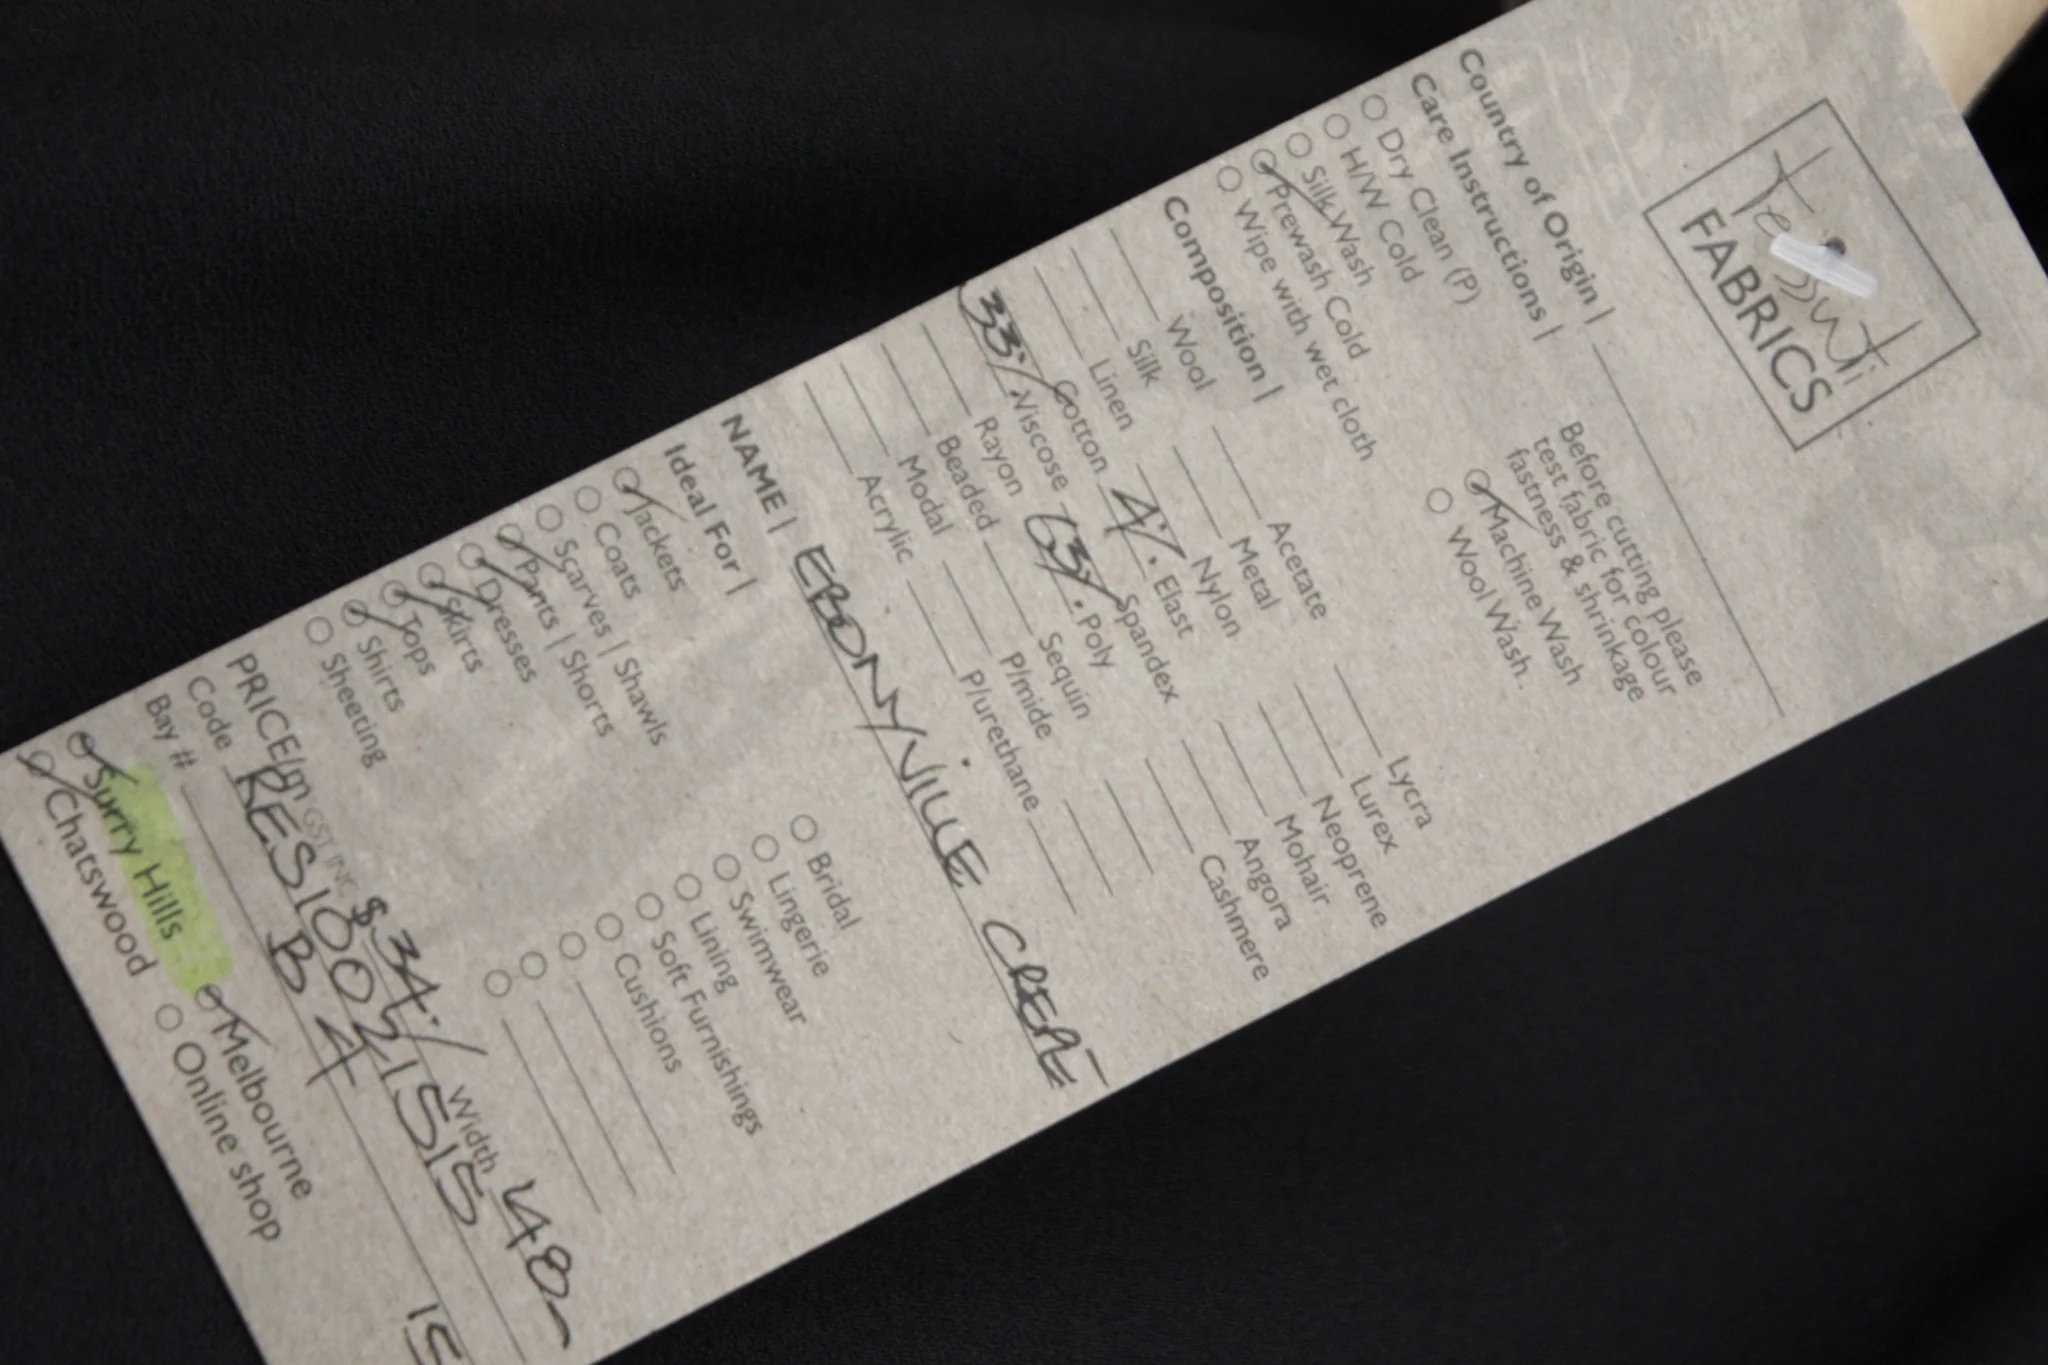 Tessuti
FABRICS
Country of Origin |
Care Instructions |
Dry Clean (P)
H/W Cold
Silk Wash
Prewash Cold
Wipe with wet cloth
Before cutting please
test fabric for colour
fastness & shrinkage
Machine Wash
Wool Wash
Composition |
Wool
Silk
Linen
Cotton
33% Viscose
Rayon
Beaded
Modal
Acrylic
Acetate
Metal
Nylon
4% Elast
Spandex
63% Poly
Sequin
P/mide
P/urethane
Lycra
Lurex
Neoprene
Mohair
Angora
Cashmere
NAME | EBONYVILLE CREPE
Ideal For |
Jackets
Coats
Scarves | Shawls
Pants | Shorts
Dresses
Skirts
Tops
Shirts
Sheeting
Bridal
Lingerie
Swimwear
Lining
Soft Furnishings
Cushions
PRICE/m GST INC $34./ Width 148
Code
Bay # B4
Surry Hills
Chatswood
Melbourne
Online shop